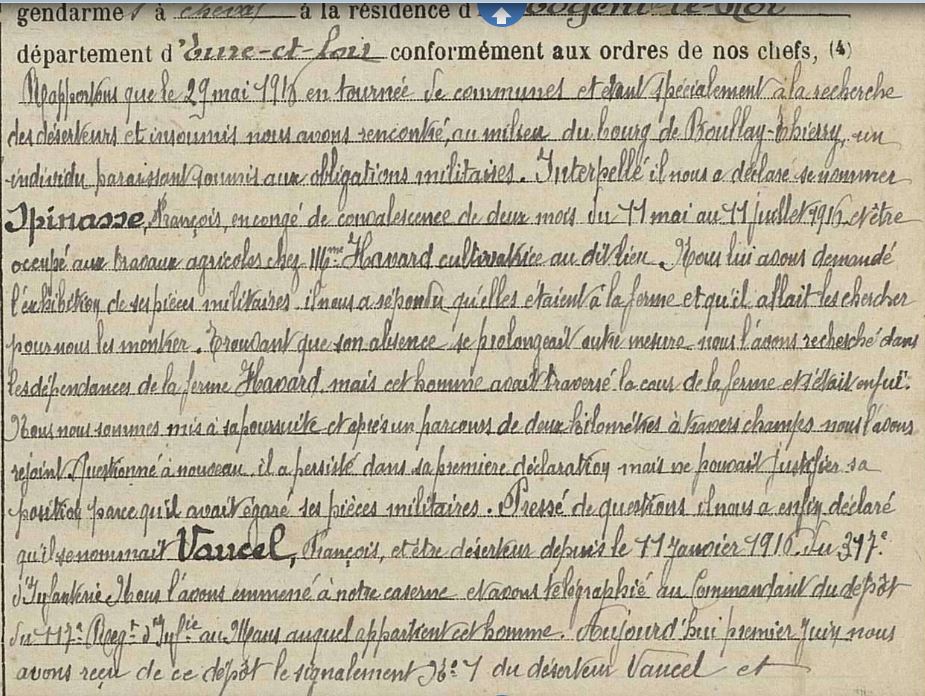 gendarmes à cheval à la résidence d
département d'Eure-et-Loir conformément aux ordres de nos chefs, (4)
Rapportons que le 29 mai 1916 en tournée de communes et étant spécialement à la recherche
des déserteurs et insoumis nous avons rencontré, au milieu du bourg de Boullay-Thierry, un
individu paraissant soumis aux obligations militaires. Interpellé il nous a déclaré se nommer
Spinasse, François, en congé de convalescence de deux mois du 11 mai au 11 juillet 1916 et être
occupé aux travaux agricoles chez Mme Havard cultivatrice au dit lieu. Nous lui avons demandé
l'exhibition de ses pièces militaires il nous a répondu qu'elles étaient à la ferme et qu'il allait les chercher
pour nous les montrer. Trouvant que son absence se prolongeait outre mesure nous l'avons recherché dans
les dépendances de la ferme Havard, mais cet homme avait traversé la cour de la ferme et s'était enfui.
Nous nous sommes mis à sa poursuite et après un parcours de deux kilomètres à travers champs nous l'avons
rejoint. Questionné à nouveau, il a persisté dans sa première déclaration mais ne pouvait justifier sa
position parce qu'il avait égaré ses pièces militaires. Pressé de questions il nous a enfin déclaré
qu'il se nommait Vaucel, François, et être déserteur depuis le 11 janvier 1916 du 317e
d'Infanterie. Nous l'avons emmené à notre caserne et avons télégraphié au Commandant du dépôt
du 117e Regt d'Infie au Mans auquel appartient cet homme. Aujourd'hui premier Juin nous
avons reçu de ce dépôt le signalement No 1 du déserteur Vaucel et